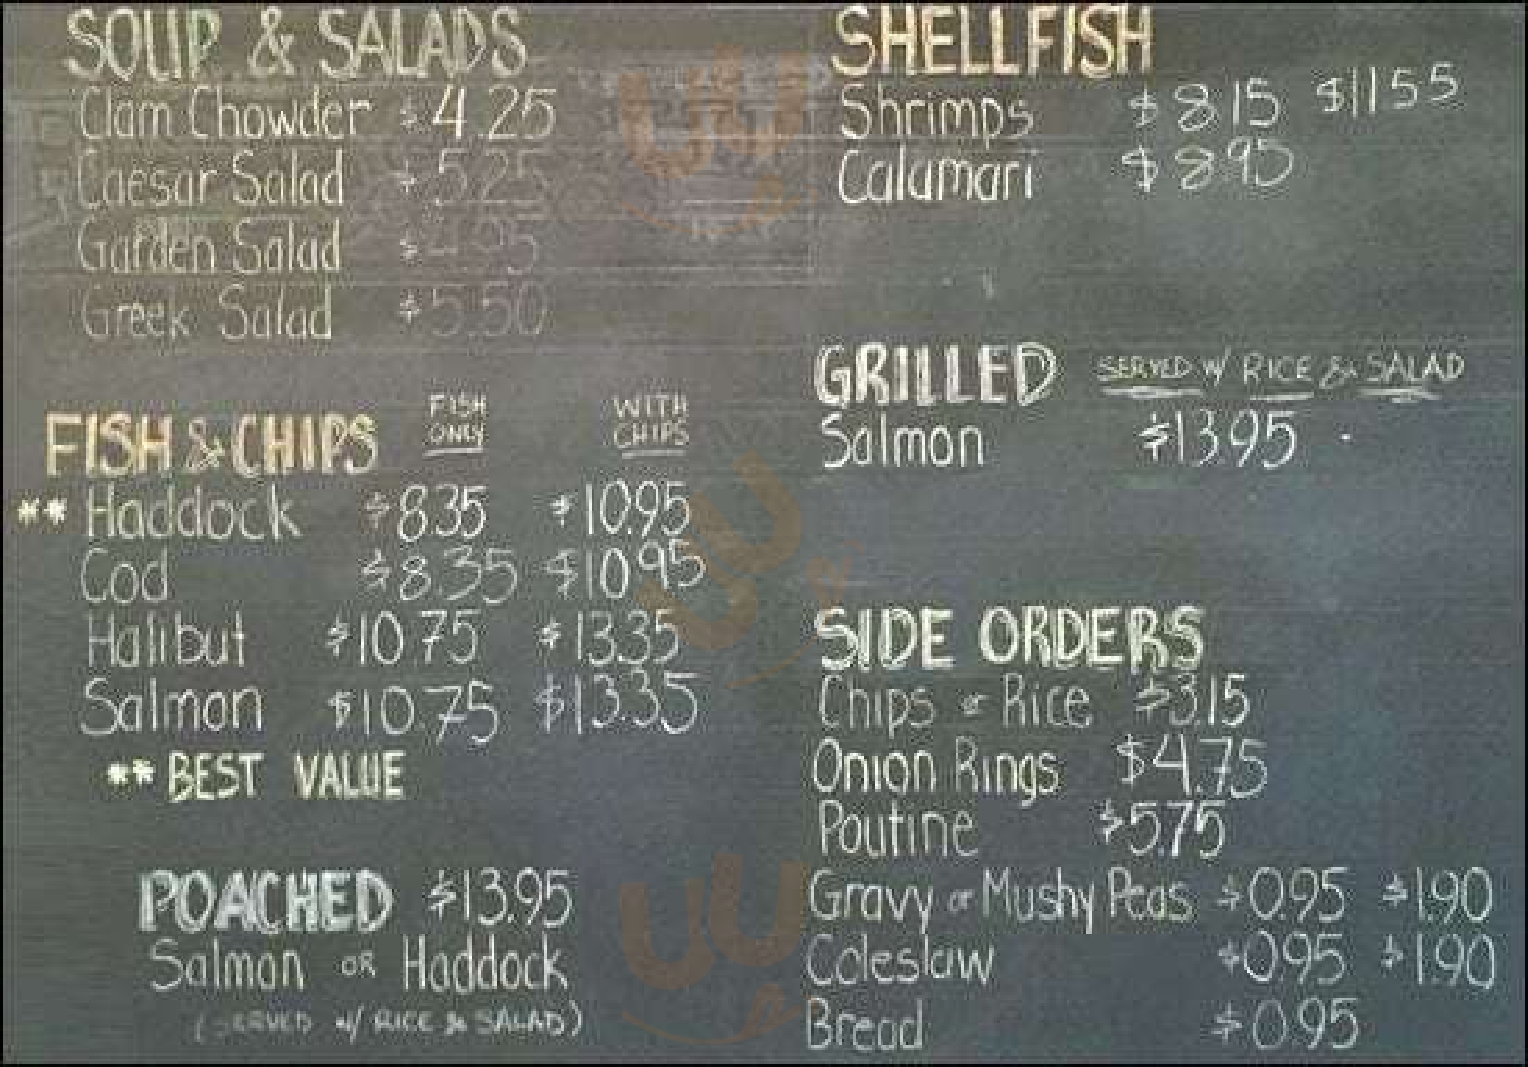 SOUP & SALADS
Clam Chowder $4.25
Caesar Salad $5.25
Garden Salad $4.95
Greek Salad $5.50
FISH & CHIPS FISH ONLY WITH CHIPS
** Haddock $8.35 $10.95
Cod $8.35 $10.95
Halibut $10.75 $13.35
Salmon $10.75 $13.35
** BEST VALUE
POACHED $13.95
Salmon OR Haddock
(SERVED W/ RICE & SALAD)
SHELLFISH
Shrimps $8.15 $11.55
Calamari $8.95
GRILLED SERVED W/ RICE & SALAD
Salmon $13.95
SIDE ORDERS
Chips or Rice $3.15
Onion Rings $4.75
Poutine $5.75
Gravy or Mushy Peas $0.95 $1.90
Coleslaw $0.95 $1.90
Bread $0.95